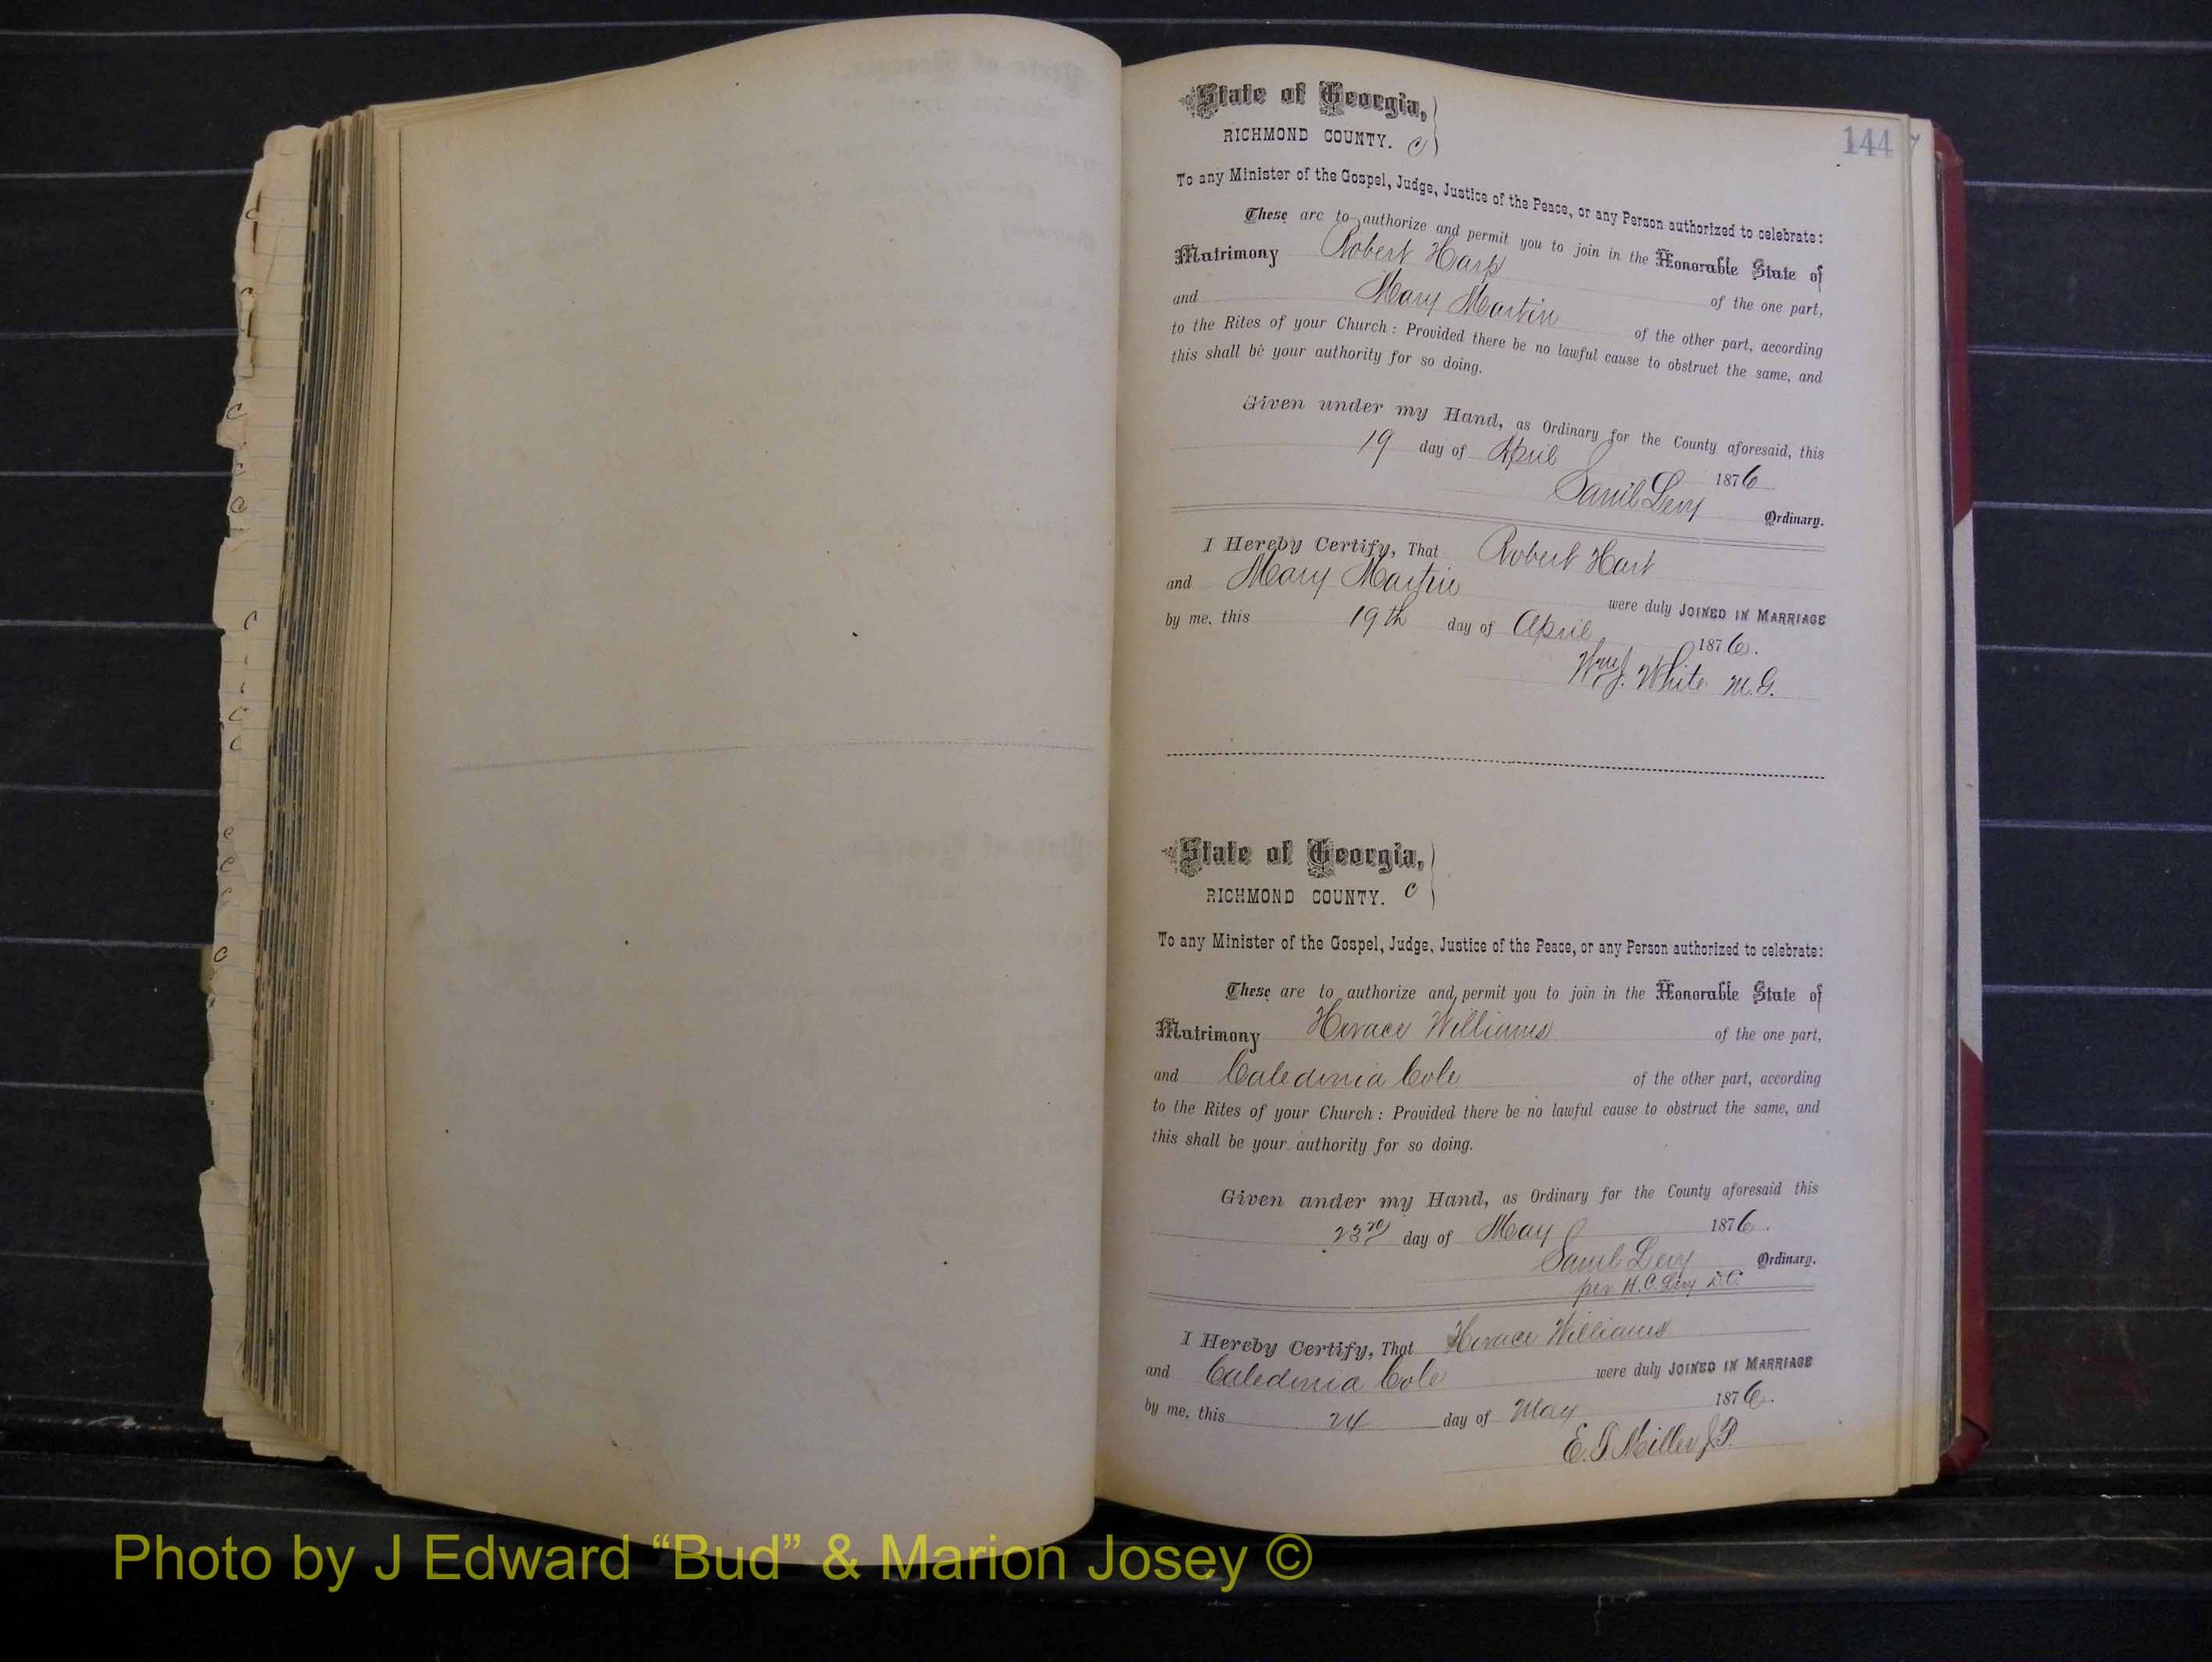 144
State of Georgia,
RICHMOND COUNTY. C
To any Minister of the Gospel, Judge, Justice of the Peace, or any Person authorized to celebrate:
These are to authorize and permit you to join in the Honorable State of
Matrimony Robert Harp of the one part,
and Mary Martin of the other part, according
to the Rites of your Church: Provided there be no lawful cause to obstruct the same, and
this shall be your authority for so doing.
Given under my Hand, as Ordinary for the County aforesaid, this
19 day of April 1876
Saml Levy Ordinary.
I Hereby Certify, That Robert Hart
and Mary Martin were duly JOINED IN MARRIAGE
by me, this 19th day of April 1876.
Wm J. White M.G.
State of Georgia,
RICHMOND COUNTY. C
To any Minister of the Gospel, Judge, Justice of the Peace, or any Person authorized to celebrate:
These are to authorize and permit you to join in the Honorable State of
Matrimony Horace Williams of the one part,
and Caledonia Cole of the other part, according
to the Rites of your Church: Provided there be no lawful cause to obstruct the same, and
this shall be your authority for so doing.
Given under my Hand, as Ordinary for the County aforesaid this
23rd day of May 1876.
Saml Levy Ordinary.
per H.C. Levy D.C.
I Hereby Certify, That Horace Williams
and Caledonia Cole were duly JOINED IN MARRIAGE
by me, this 24 day of May 1876.
E. Miller J.P.
Photo by J Edward “Bud” & Marion Josey ©